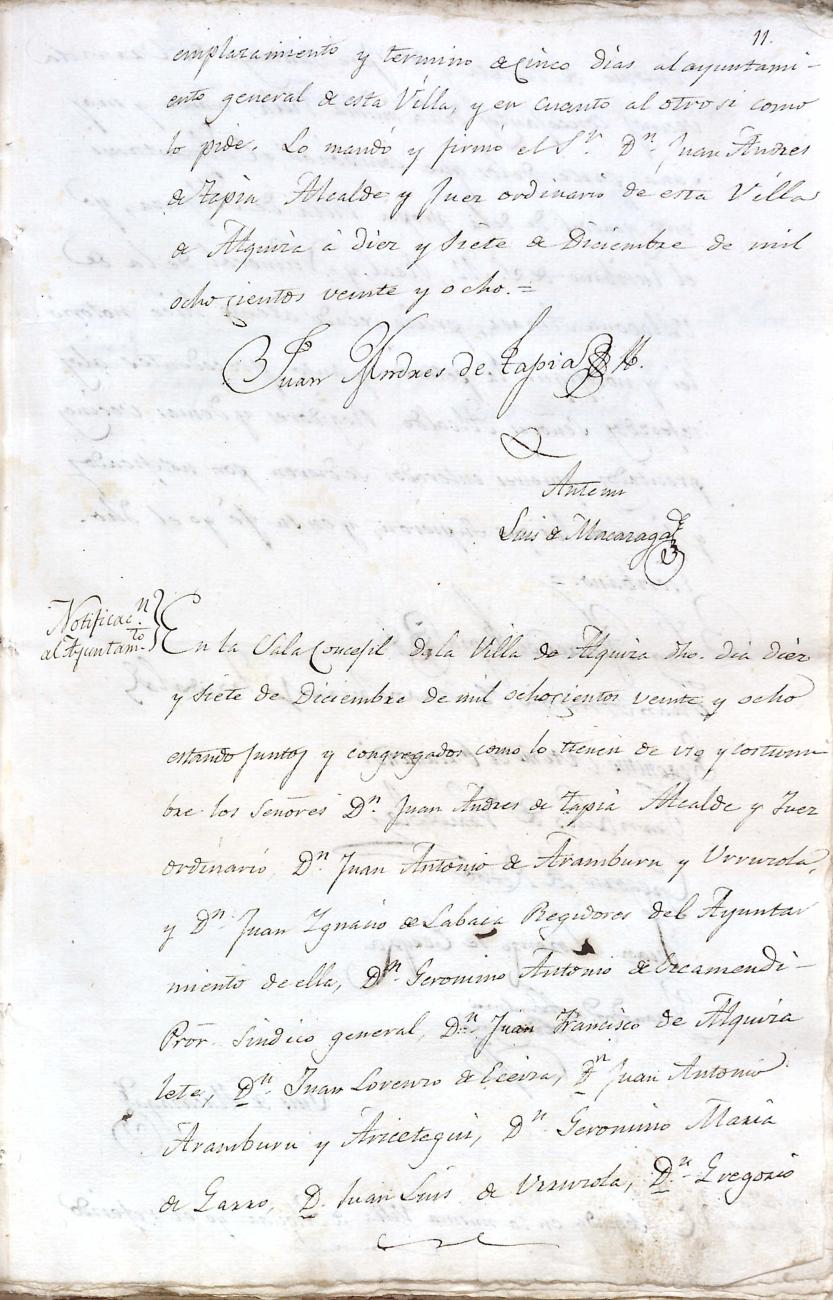 11.
emplazamiento y termino de Cinco dias al ayuntami-
ento general de esta Villa, y en cuanto al otrosi como
lo pide. Lo mandó y firmó el S.r D.n Juan Andres
de Tapia Alcalde y Juez ordinario de esta Villa
de Alquiza à diez y siete de Diciembre de mil
ocho cientos veinte y ocho.=
Juan Andres de Tapia
Antemi
Luis de Macazaga
Notificac.n
al Ayuntam.to
En la Sala Concejil de la Villa de Alquiza dho. dia diez
y siete de Diciembre de mil ochocientos veinte y ocho
estando juntos y congregados como lo tienen de uso y costum-
bre los Señores D.n Juan Andres de Tapia Alcalde y Juez
ordinario, D.n Juan Antonio de Aramburu y Urruzola,
y D.n Juan Ygnacio de Labaca Regidores del Ayunta-
miento de ella, D.n Geronimo Antonio de Orcamendi-
Pror. Sindico general, D.n Juan Francisco de Alquiza
lete, D.n Juan Lorenzo de Eceiza, D.n Juan Antonio
Aramburu y Aricetegui, D.n Geronimo Maria
de Garro, D. Juan Luis de Urruzola, D.n Gregorio